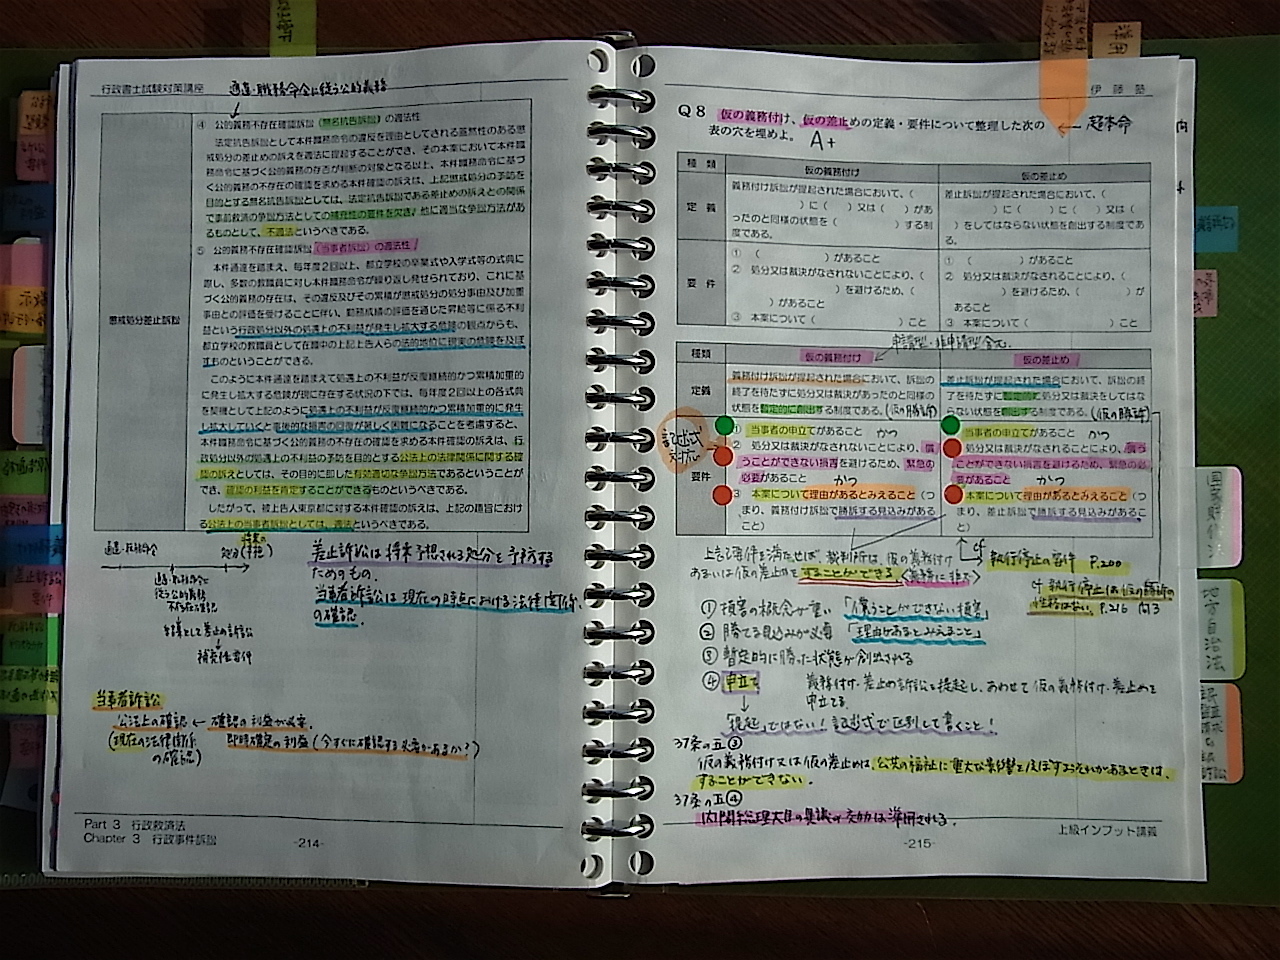 行政書士試験対策講座
通達・職務命令に従う公的義務
懲戒処分差止訴訟
④ 公的義務不存在確認訴訟(無名抗告訴訟)の適法性
法定抗告訴訟として本件職務命令の違反を理由としてされる蓋然性のある懲
戒処分の差止めの訴えを適法に提起することができ、その本案において本件職
務命令に基づく公的義務の存否が判断の対象となる以上、本件職務命令に基づ
く公的義務の不存在の確認を求める本件確認の訴えは、上記懲戒処分の予防を
目的とする無名抗告訴訟としては、法定抗告訴訟である差止めの訴えとの関係
で事前救済の争訟方法としての補充性の要件を欠き、他に適当な争訟方法があ
るものとして、不適法というべきである。
⑤ 公的義務不存在確認訴訟(当事者訴訟)の適法性
本件通達を踏まえ、毎年度2回以上、都立学校の卒業式や入学式等の式典に
際し、多数の教職員に対し本件職務命令が繰り返し発せられており、これに基
づく公的義務の存在は、その違反及びその累積が懲戒処分の処分事由及び加重
事由との評価を受けることに伴い、勤務成績の評価を通じた昇給等に係る不利
益という行政処分以外の処遇上の不利益が発生し拡大する危険の観点からも、
都立学校の教職員として在職中の上記上告人らの法的地位に現実の危険を及ぼ
すものということができる。
このように本件通達を踏まえて処遇上の不利益が反復継続的かつ累積加重的
に発生し拡大する危険が現に存在する状況の下では、毎年度2回以上の各式典
を契機として上記のように処遇上の不利益が反復継続的かつ累積加重的に発生
し拡大していくと事後的な損害の回復が著しく困難になることを考慮すると、
本件職務命令に基づく公的義務の不存在の確認を求める本件確認の訴えは、行
政処分以外の処遇上の不利益の予防を目的とする公法上の法律関係に関する確
認の訴えとしては、その目的に即した有効適切な争訟方法であるということがで
き、確認の利益を肯定することができるものというべきである。
したがって、被上告人東京都に対する本件確認の訴えは、上記の趣旨におけ
る公法上の当事者訴訟としては、適法というべきである。
通達・職務命令
処分(予想)
通達・職務命令に
従う公的義務
不存在確認
対象とした差止め訴訟
補充性要件
差止訴訟は将来予想される処分を予防する
ためのもの。
当事者訴訟は現在の時点における法律関係
の確認。
当事者訴訟
公法上の確認 ← 確認の利益が必要。
(現在の法律関係
の確認)
即時確定の利益(今すぐに確認する必要があるか?)
Part 3 行政救済法
Chapter 3 行政事件訴訟
-214-
伊藤塾
Q8 仮の義務付け、仮の差止めの定義・要件について整理した次の
表の穴を埋めよ。
A+
← 超本命
種類
仮の義務付け
仮の差止め
定義
義務付け訴訟が提起された場合において、(
)に( )又は( )があ
ったのと同様の状態を( )する制
度である。
差止訴訟が提起された場合において、(
)に( )に( )又は(
)をしてはならない状態を創出する制度であ
る。
要件
① ( )があること
② 処分又は裁決がなされないことにより、(
)を避けるため、(
)があること
③ 本案について( )こと
① ( )があること
② 処分又は裁決がなされることにより、(
)を避けるため、( )が
あること
③ 本案について( )こと
申請型・非申請型含む。
種類
仮の義務付け
仮の差止め
定義
義務付け訴訟が提起された場合において、訴訟の
終了を待たずに処分又は裁決があったのと同様の
状態を暫定的に創出する制度である。(仮の勝訴)
差止訴訟が提起された場合において、訴訟の終
了を待たずに暫定的に処分又は裁決をしてはな
らない状態を創出する制度である。(仮の勝訴)
記述式
対応
要件
① 当事者の申立てがあること かつ
② 処分又は裁決がなされないことにより、償
うことができない損害を避けるため、緊急の
必要があること かつ
③ 本案について理由があるとみえること(つ
まり、義務付け訴訟で勝訴する見込みがある
こと)
当事者の申立てがあること かつ
処分又は裁決がなされることにより、償う
ことができない損害を避けるため、緊急の必
要があること かつ
本案について理由があるとみえること(つ
まり、差止訴訟で勝訴する見込みがあるこ
と)
上記要件を満たせば、裁判所は、仮の義務付け
あるいは仮の差止めをすることができる(義務に非ず)
cf
執行停止の要件 P.200
cf 執行停止は仮の勝訴の
性格はない。P.216 問3
① 損害の概念が重い 「償うことができない損害」
② 勝てる見込みが必要 「理由があるとみえること」
③ 暫定的に勝った状態が創出される
④ 申立て 義務付け・差止め訴訟を提起し、あわせて仮の義務付け・差止めを
申立てる。
↓
「提起」ではない!記述式で区別して書くこと!
37条の五③
仮の義務付け又は仮の差止めは、公共の福祉に重大な影響を及ぼすおそれがあるときは、
することができない。
37条の五④
内閣総理大臣の異議の効力は準用される。
上級インプット講義
-215-
国家賠償法
地方自治法